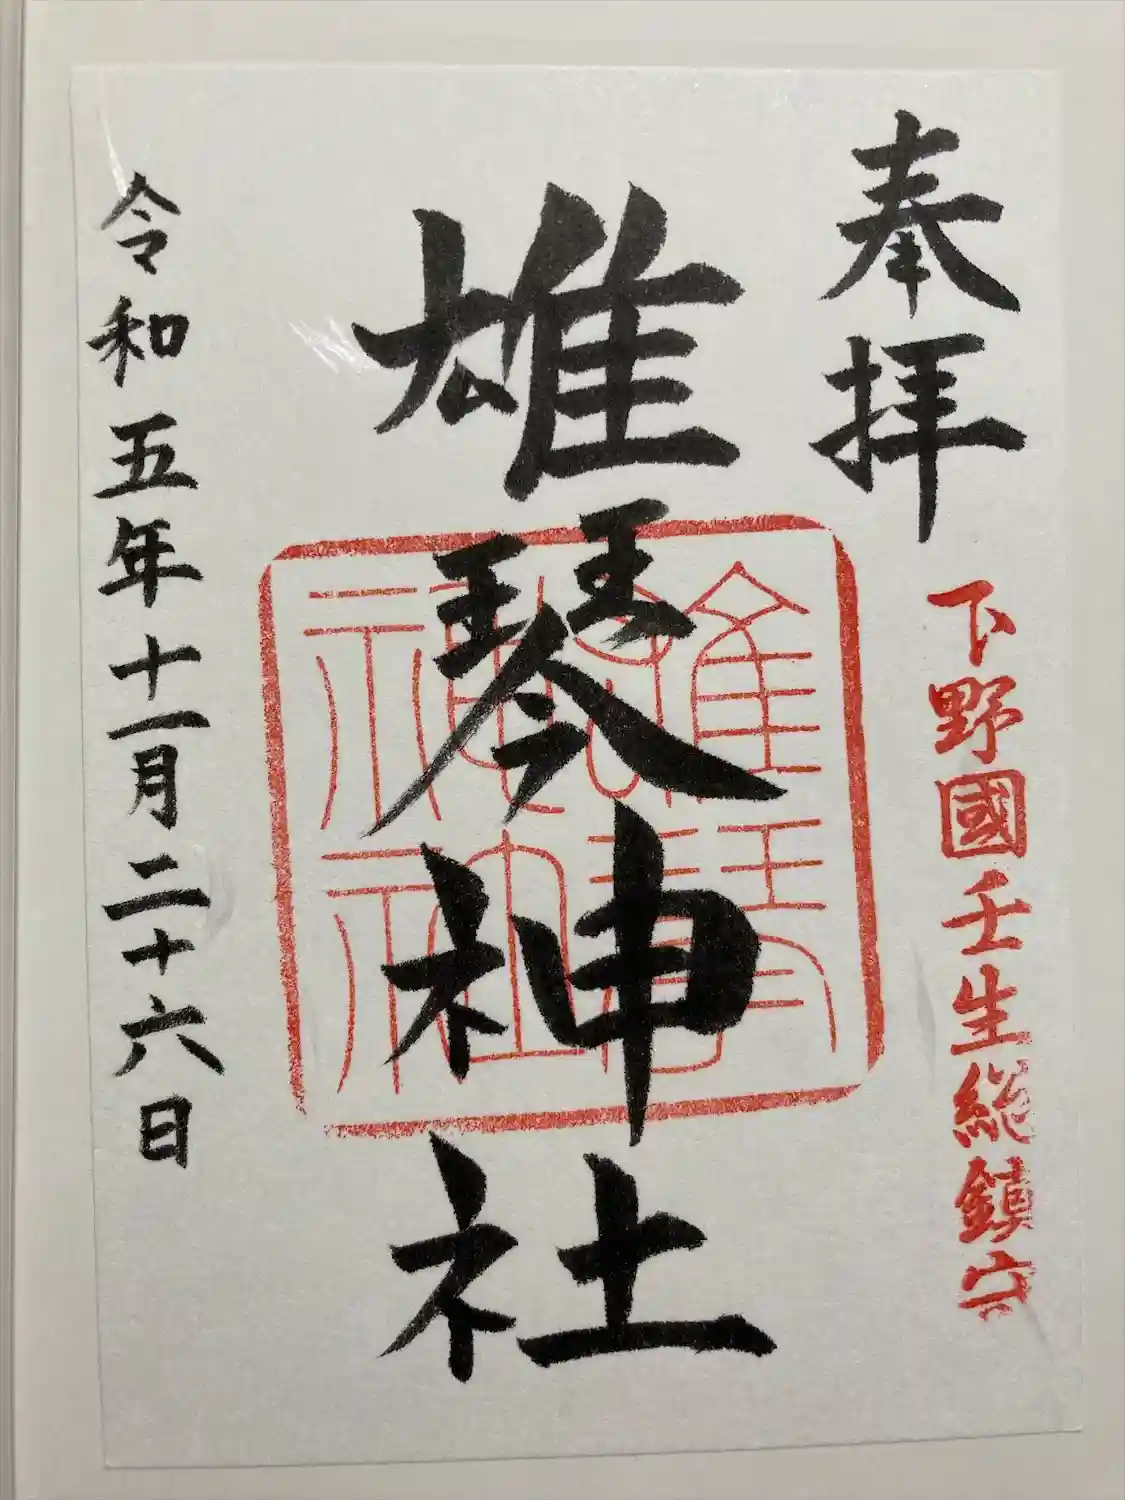 奉拝
下野國壬生総鎮守
雄琴神社
雄琴神社
令和五年十一月二十六日